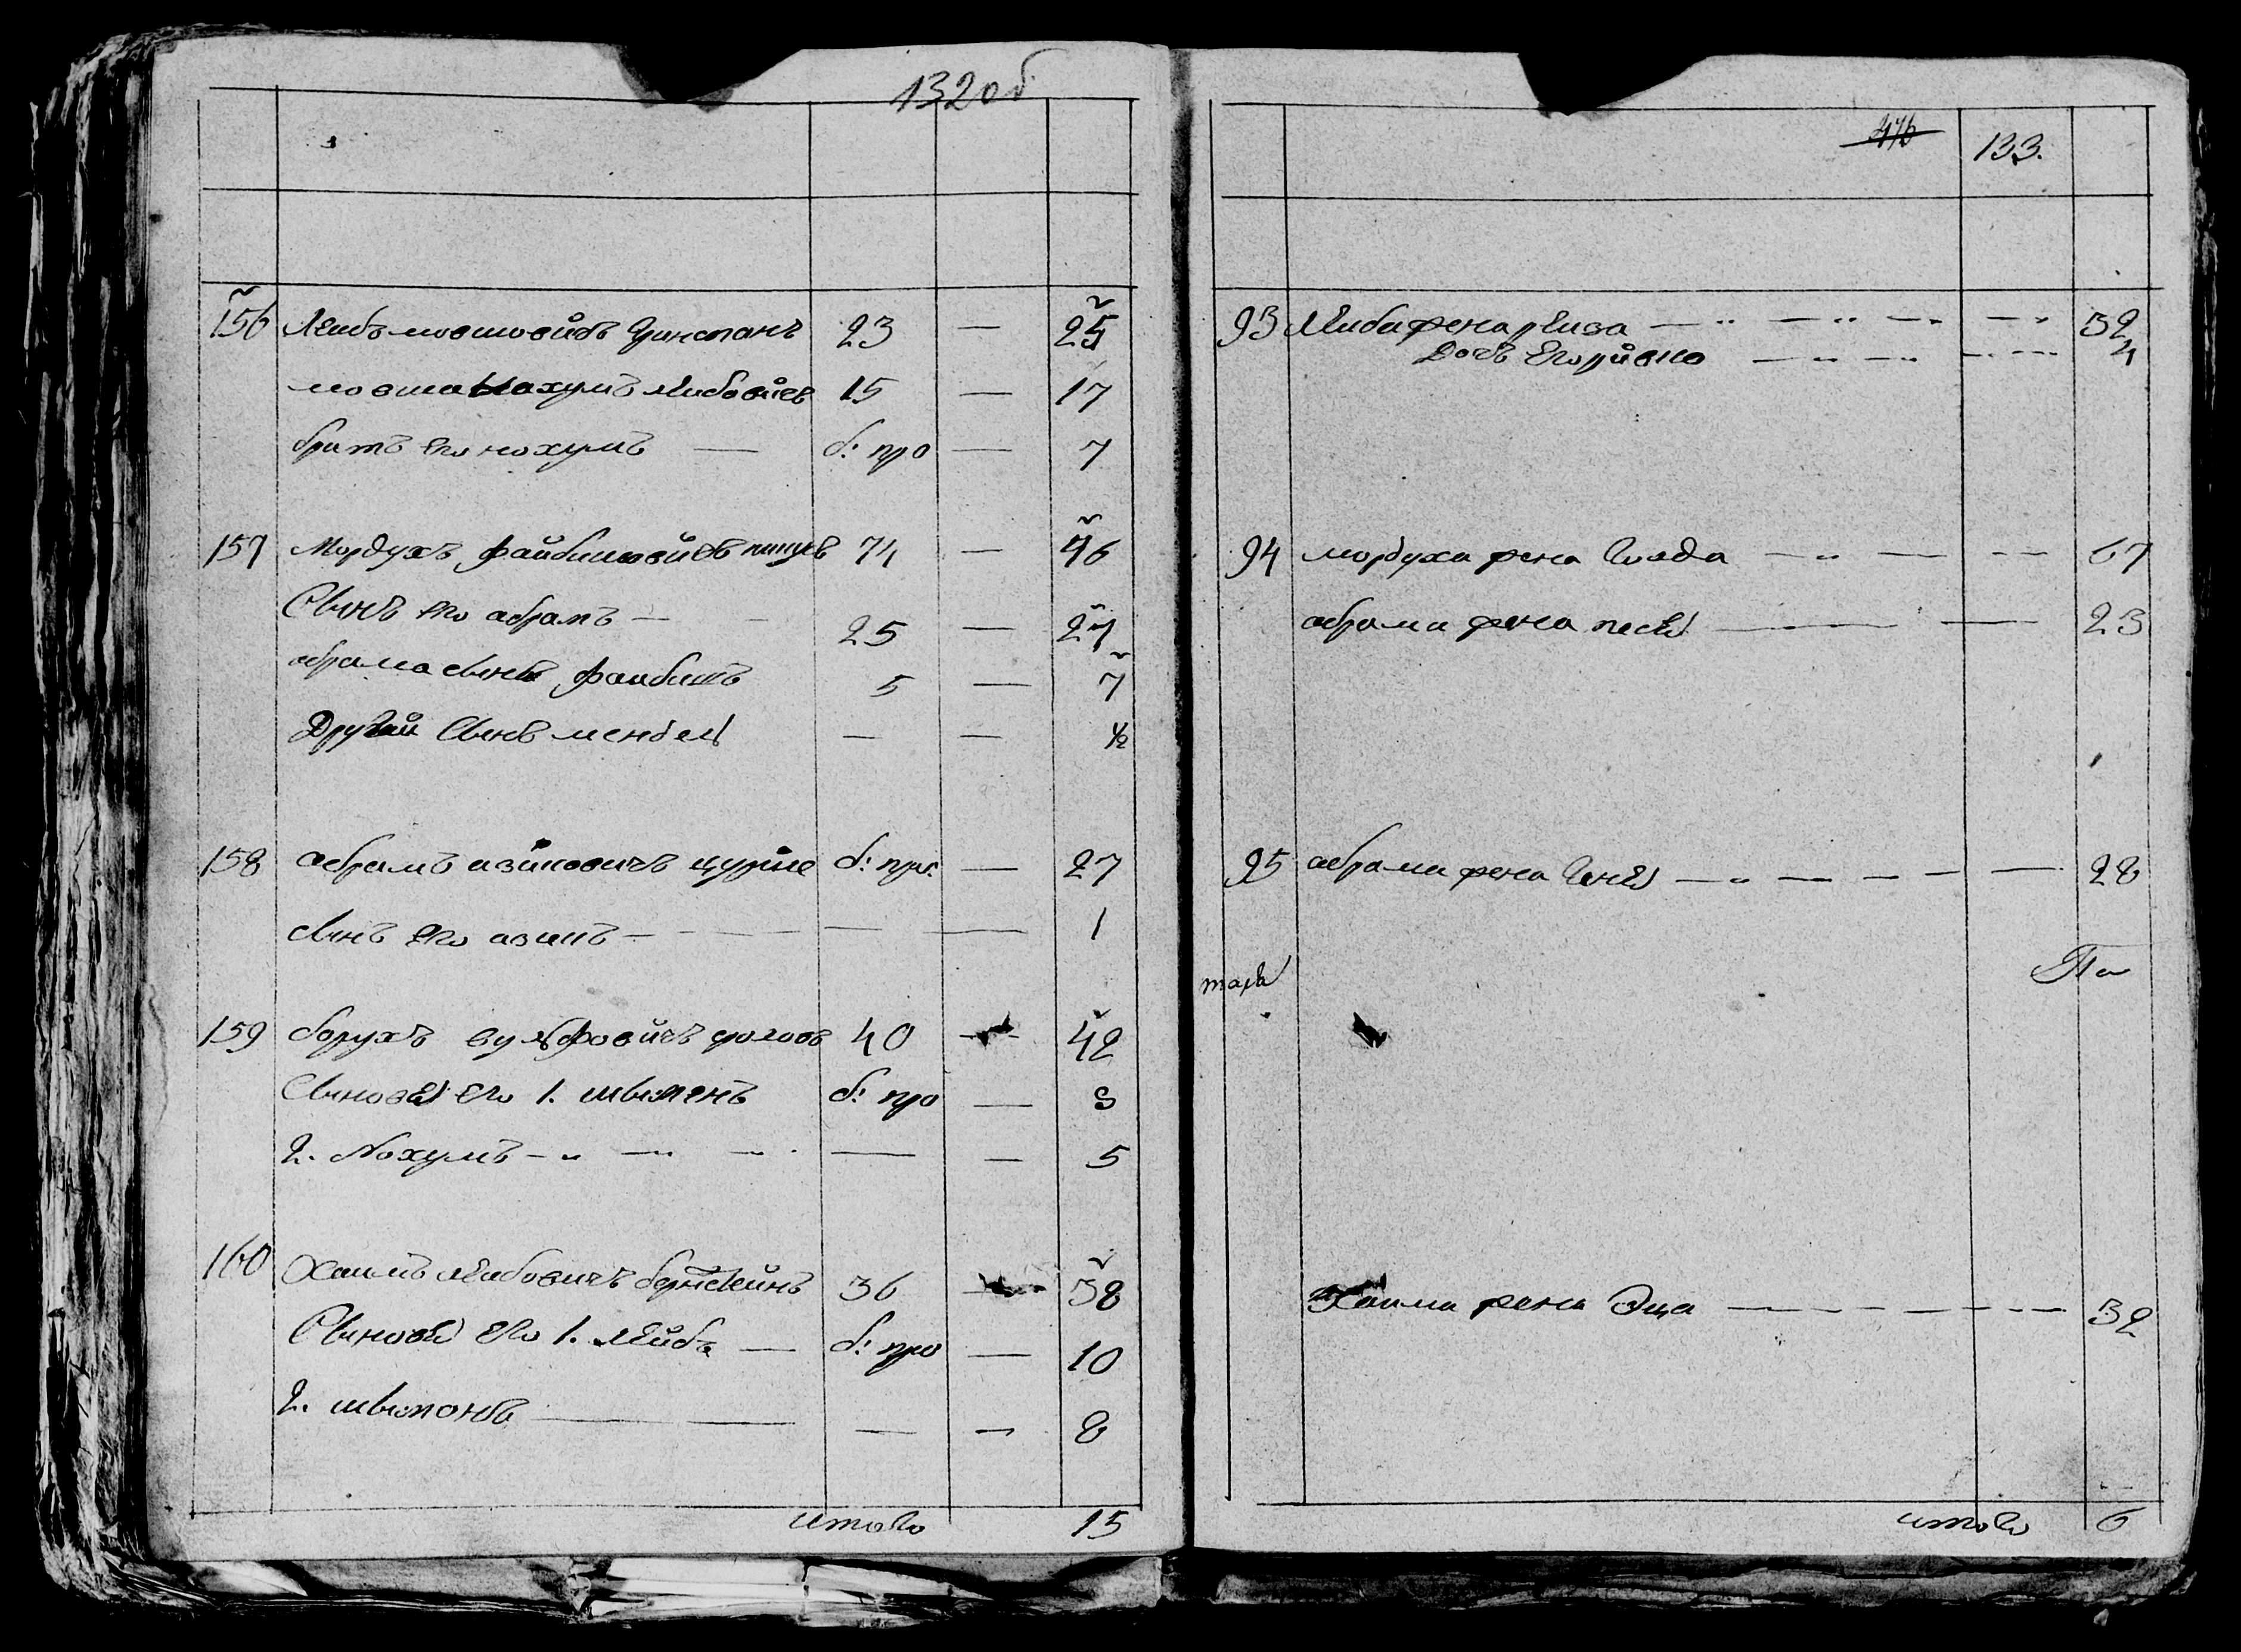 132об
156 Леибъ мовшовичъ Гринспанъ 23 — 25
мовша Нахумъ леибовичъ 15 — 17
братъ его нохумъ — б: про — 7
157 Мордухъ файбишовичъ 74 — 76
Сынъ его абрамъ — 25 — 27
абрама сынъ файбишъ 5 — 7
Другой Сынъ мендель — — ½
158 абрамъ изиковичъ б: про: — 27
сынъ его изикъ — — — 1
159 борухъ вульфовичъ 40 — 42
Сыновья его 1. шлыоменъ б: про — 9
2. Нохумъ — — — 5
160 Хаимъ леибовичъ бернстеинъ 36 — 38
Сыновья его 1. лейбъ — б: про — 10
2. — — — 8
итого 15
476 133.
93 Леиба жена рейза — 32
дочь его — 4
94 мордуха жена Гнеда — 67
абрама жена песя — 23
95 абрама жена Геня — 28
Хаима жена Эща — 32
итого 6